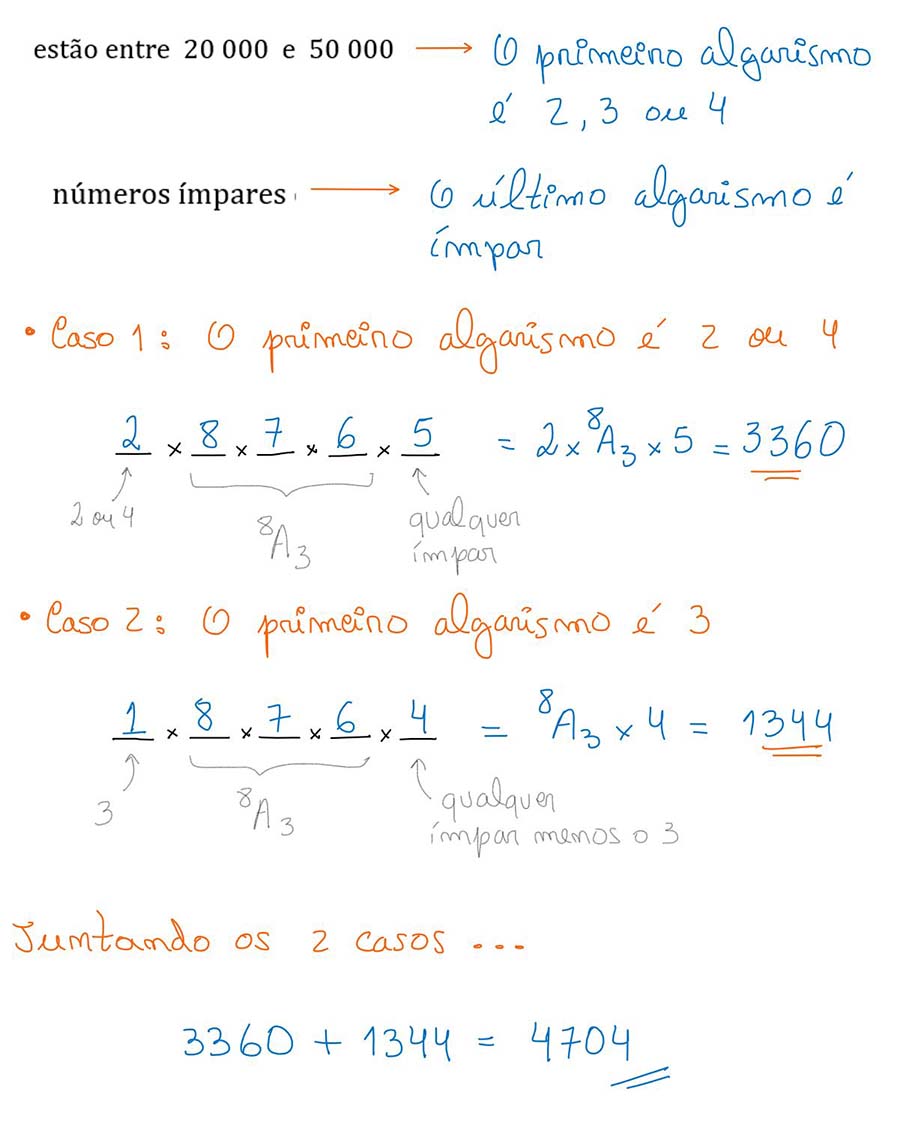 estão entre 20 000 e 50 000 → O primeiro algarismo
é 2, 3 ou 4
números ímpares → O último algarismo é
ímpar
• Caso 1: O primeiro algarismo é 2 ou 4
2 × 8 × 7 × 6 × 5 = 2 × ⁸A₃ × 5 = 3360
2 ou 4 ⁸A₃ qualquer
ímpar
• Caso 2: O primeiro algarismo é 3
1 × 8 × 7 × 6 × 4 = ⁸A₃ × 4 = 1344
3 ⁸A₃ qualquer
ímpar menos o 3
Juntando os 2 casos ...
3360 + 1344 = 4704